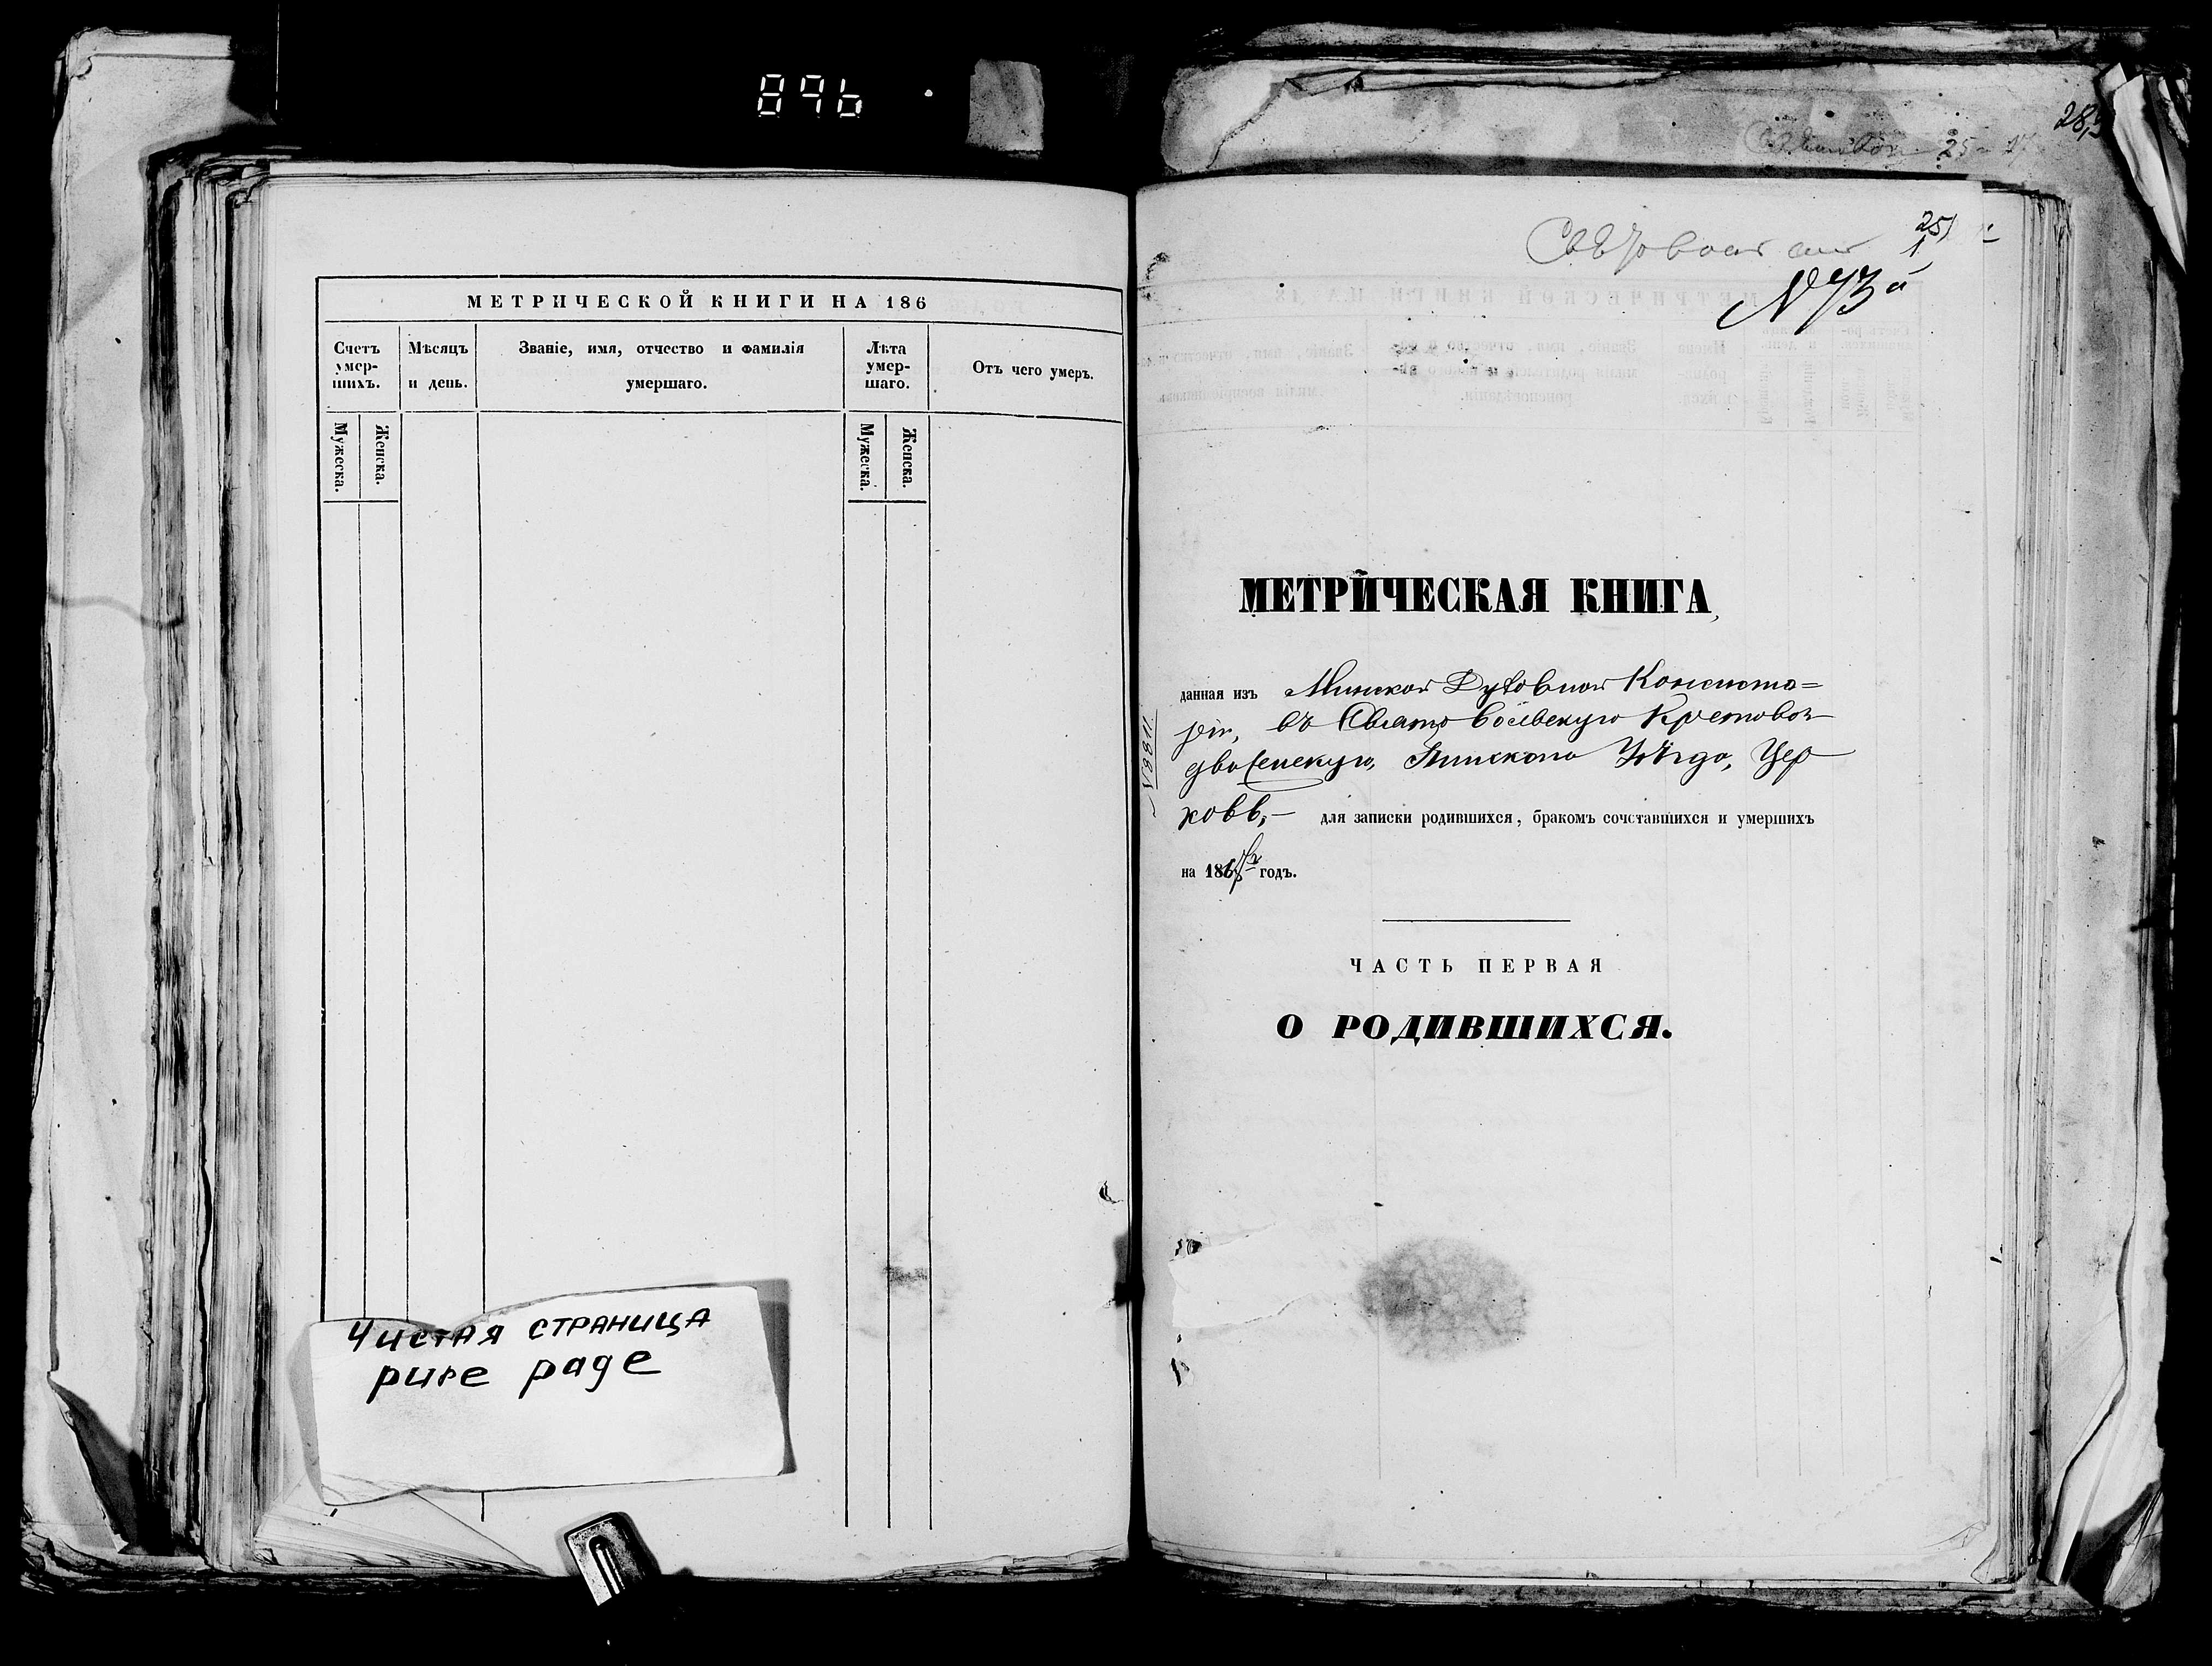 896
МЕТРИЧЕСКОЙ КНИГИ НА 186
Счетъ умер-шихъ.
Мѣсяцъ и день.
Званіе, имя, отчество и фамилія умершаго.
Лѣта умер-шаго.
Отъ чего умеръ.
Мужеска.
Женска.
Мужеска.
Женска.
Чистая страница
pure page
25
№ 73й
МЕТРИЧЕСКАЯ КНИГА,
данная изъ Минской Духовной Консисто=
ріи, въ Свято Вольскую Крестовоз-
движенскую, Пинскаго Уѣзда, Цер
ковь, для записки родившихся, бракомъ сочетавшихся и умершихъ
на 186 годъ.
ЧАСТЬ ПЕРВАЯ
О РОДИВШИХСЯ.